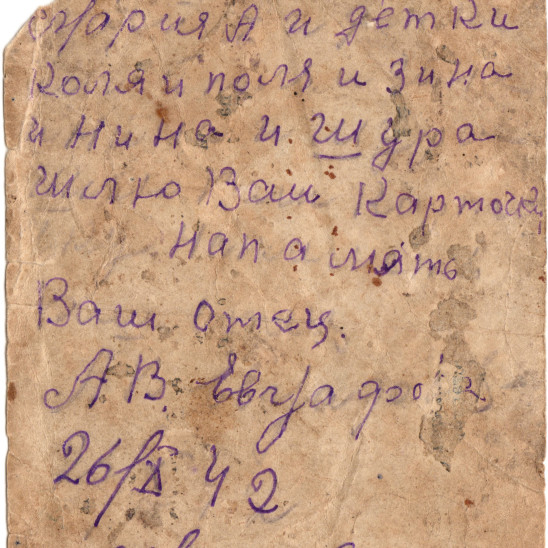 Мария А и детки
Коля и поля и Зина
и Нина и Шура
шлю Вам Карточку
на память
Ваш отец.
АВ. Евграфов
26/X 42